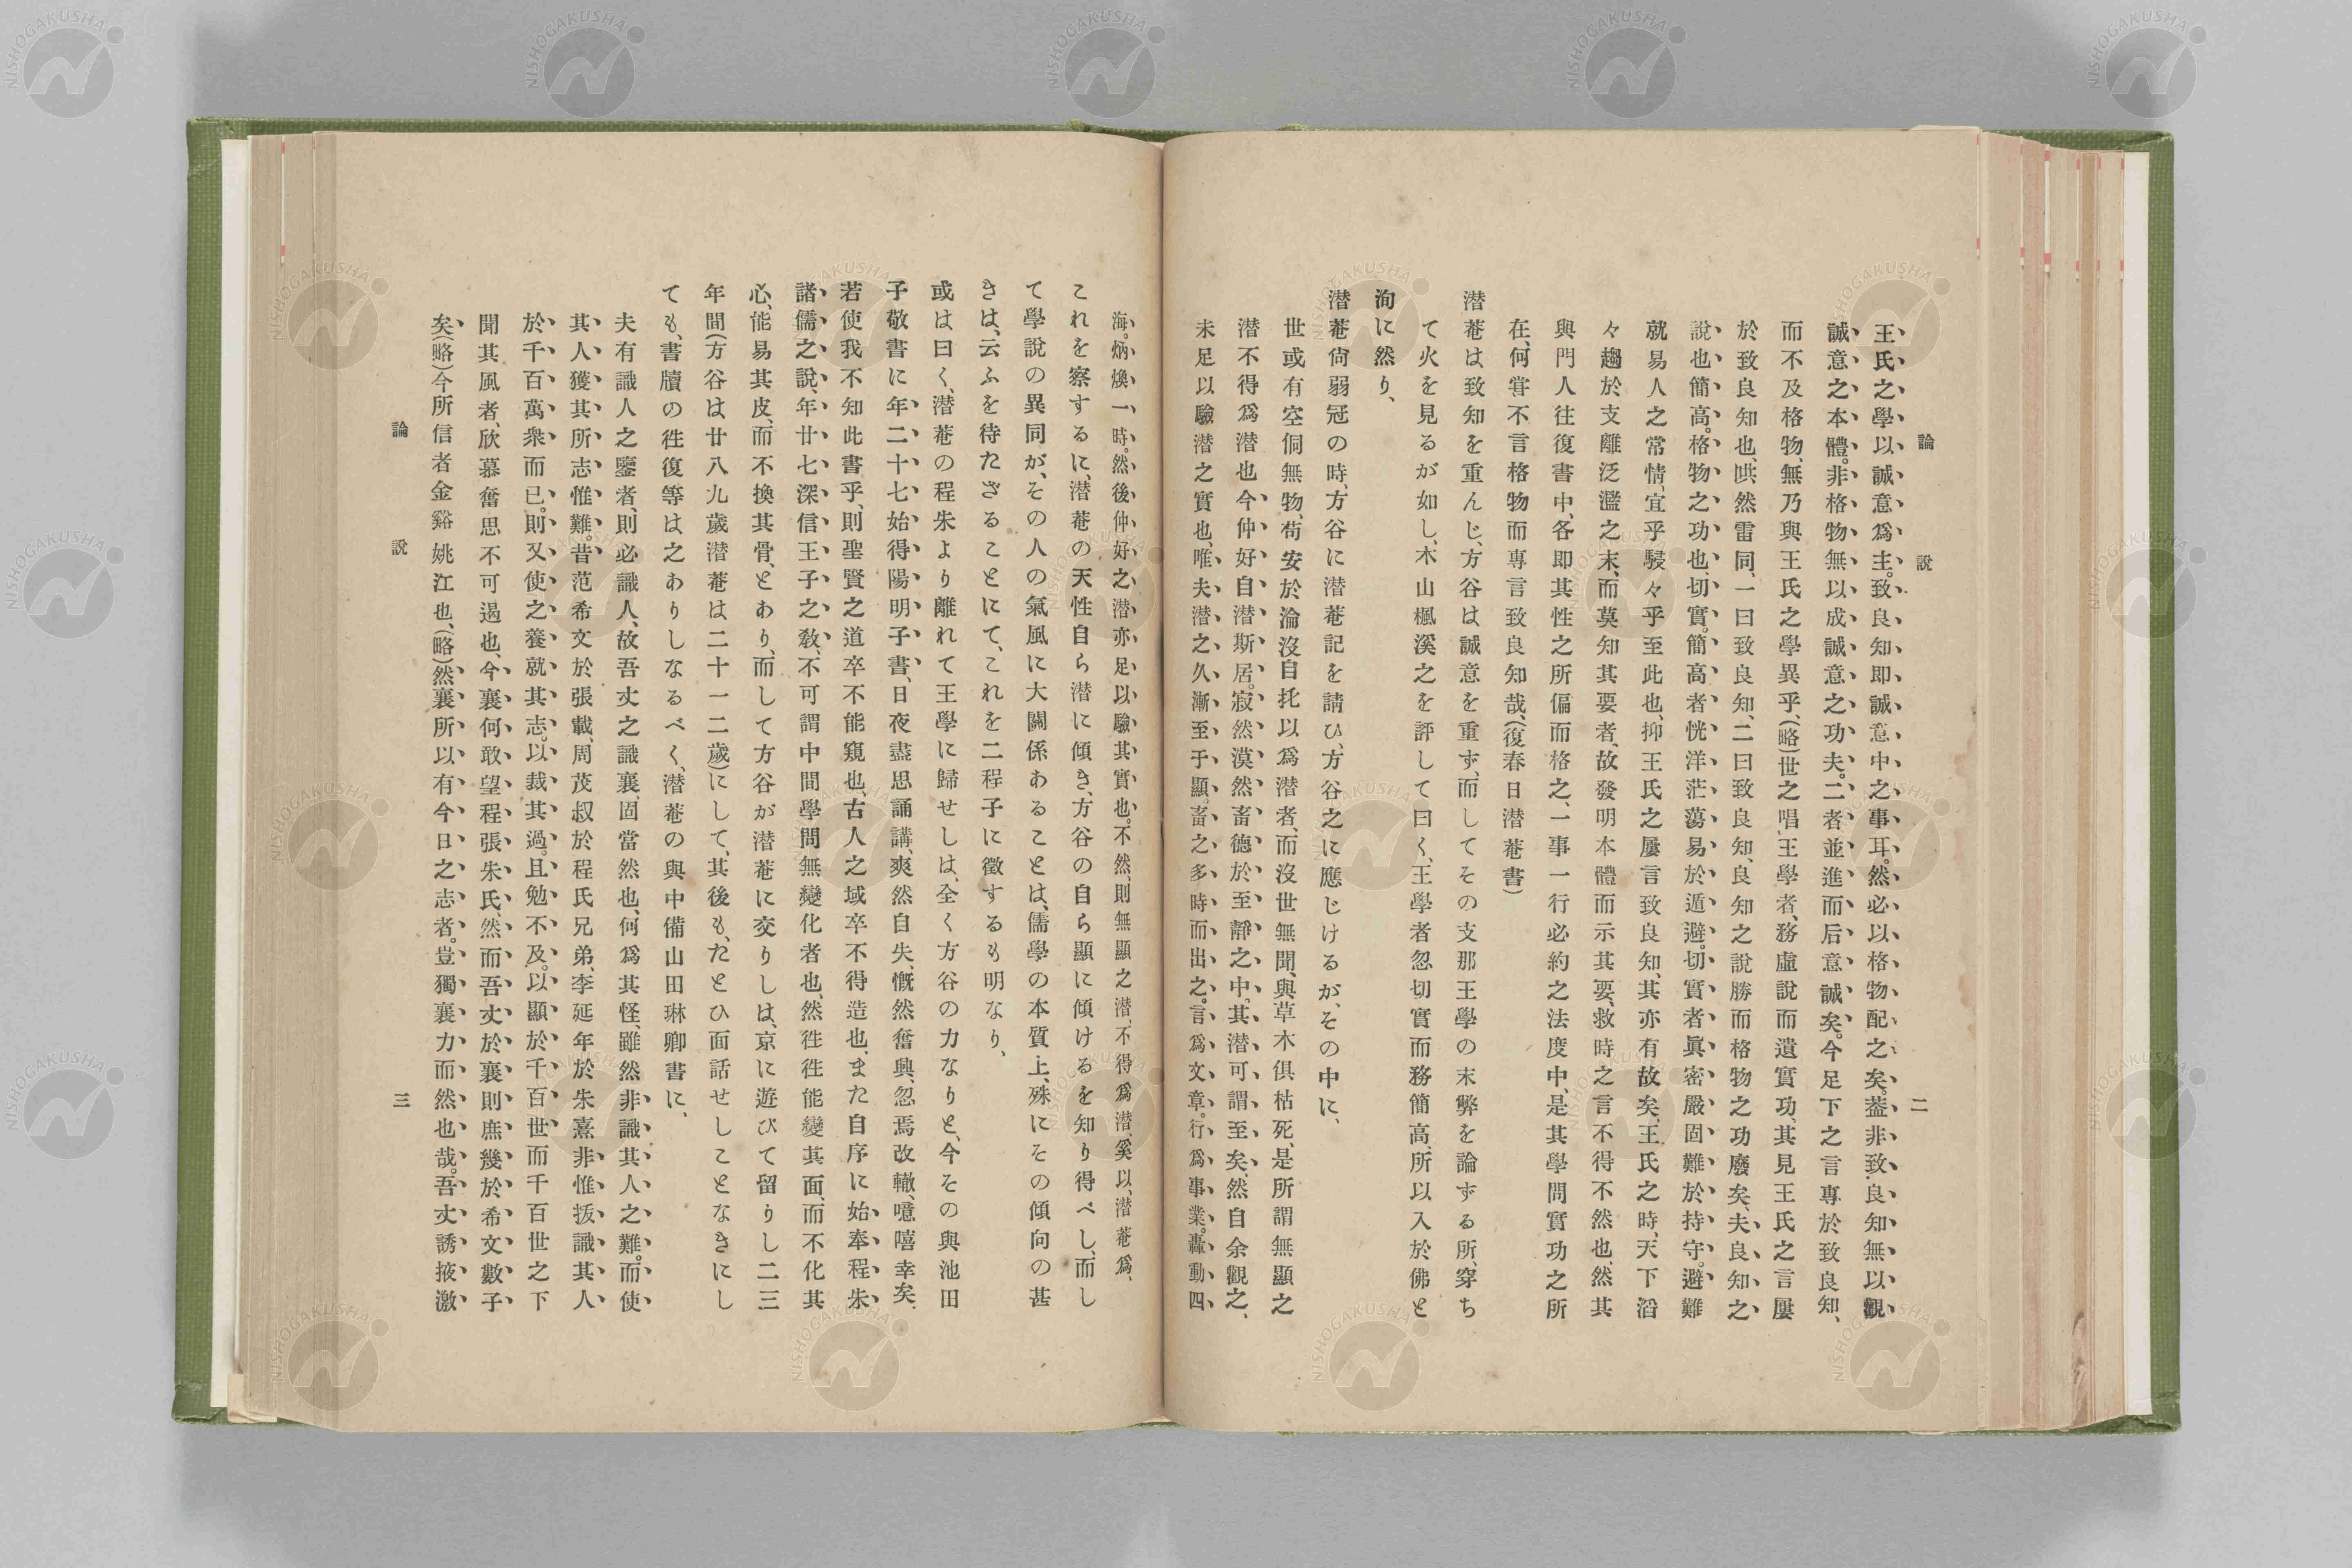 論説 二
王氏之學、以誠意爲主。致良知、即誠意中之事耳。然必以格物配之矣。葢非致良知、無以觀
誠意之本體。非格物、無以成誠意之功夫。二者並進、而后意誠矣。今足下之言專於致良知、
而不及格物、無乃與王氏之學異乎、(略)世之唱王學者、務虛說而遺實功、其見王氏之言屢
於致良知也、哄然雷同、一曰致良知、二曰致良知、良知之說勝而格物之功廢矣、夫良知之
說也簡高。格物之功也切實。簡高者恍洋茫蕩易於遁避。切實者眞密嚴固難於持守。避難
就易人之常情、宜乎駸々乎至此也、抑王氏之屢言致良知、其亦有故矣、王氏之時、天下滔
々趨於支離泛濫之末、而莫知其要者、故發明本體而示其要、救時之言不得不然也、然其
與門人往復書中、各即其性之所偏而格之、一事一行必約之法度中、是其學問實功之所
在、何甞不言格物而專言致良知哉、(復春日潜菴書)
潜菴は致知を重んじ、方谷は誠意を重ず、而してその支那王學の末弊を論ずる所、穿ち
て火を見るが如し、木山楓溪之を評して曰く、王學者忽切實而務簡高、所以入於佛と
洵に然り、
潜菴尙弱冠の時、方谷に潜菴記を請ひ、方谷之に應じけるが、その中に、
世或有空侗無物、苟安於淪沒自托以爲潜者、而沒世無聞、與草木俱枯死、是所謂無顯之
潜不得爲潜也今仲好自潜斯居。寂然漠然畜德於至靜之中。其潜可謂至矣、然自余觀之、
未足以驗潜之實也、唯夫潜之久、漸至于顯。畜之多時而出之。言爲文章。行爲事業。轟動四
海。炳煥一時。然後仲好之潜亦足以驗其實也。不然、則無顯之潜、不得爲潜、奚以潜菴爲、
これを察するに、潜菴の天性自ら潜に傾き、方谷の自ら顯に傾けるを知り得べし、而し
て學說の異同が、その人の氣風に大關係あることは、儒學の本質上、殊にその傾向の甚
きは、云ふを待たざることにて、これを二程子に徵するも明なり、
或は曰く、潜菴の程朱より離れて王學に歸せしは、全く方谷の力なりと、今その與池田
子敬書に年二十七始得陽明子書、日夜盡思誦講、爽然自失、慨然奮興、忽焉改轍、噫嘻幸矣、
若使我不知此書乎、則聖賢之道卒不能窺也、古人之域卒不得造也、また自序に始奉程朱
諸儒之說、年廿七深信王子之敎、不可謂中間學問無變化者也、然徃徃能變其面、而不化其
心、能易其皮、而不換其骨、とあり、而して方谷が潜菴に交りしは、京に遊びて留りし二三
年間(方谷は廿八九歲潜菴は二十一二歲)にして、其後も、たとひ面話せしことなきにし
ても、書牘の徃復等は之ありしなるべく、潜菴の與中備山田琳卿書に、
夫有識人之鑒者、則必識人、故吾丈之識襄、固當然也、何爲其怪、雖然非識其人之難。而使
其人獲其所志惟難。昔范希文於張載、周茂叔於程氏兄弟、李延年於朱熹非惟拔識其人
於千百萬衆而已。則又使之養就其志。以裁其過。且勉不及。以顯於千百世而千百世之下
聞其風者、欣慕奮思不可遏也、今襄何敢望程張朱氏、然而吾丈於襄則庶幾於希文數子
矣、(略)今所信者金谿姚江也、(略)然襄所以有今日之志者。豈獨襄力而然也哉。吾丈誘掖激
論説 三